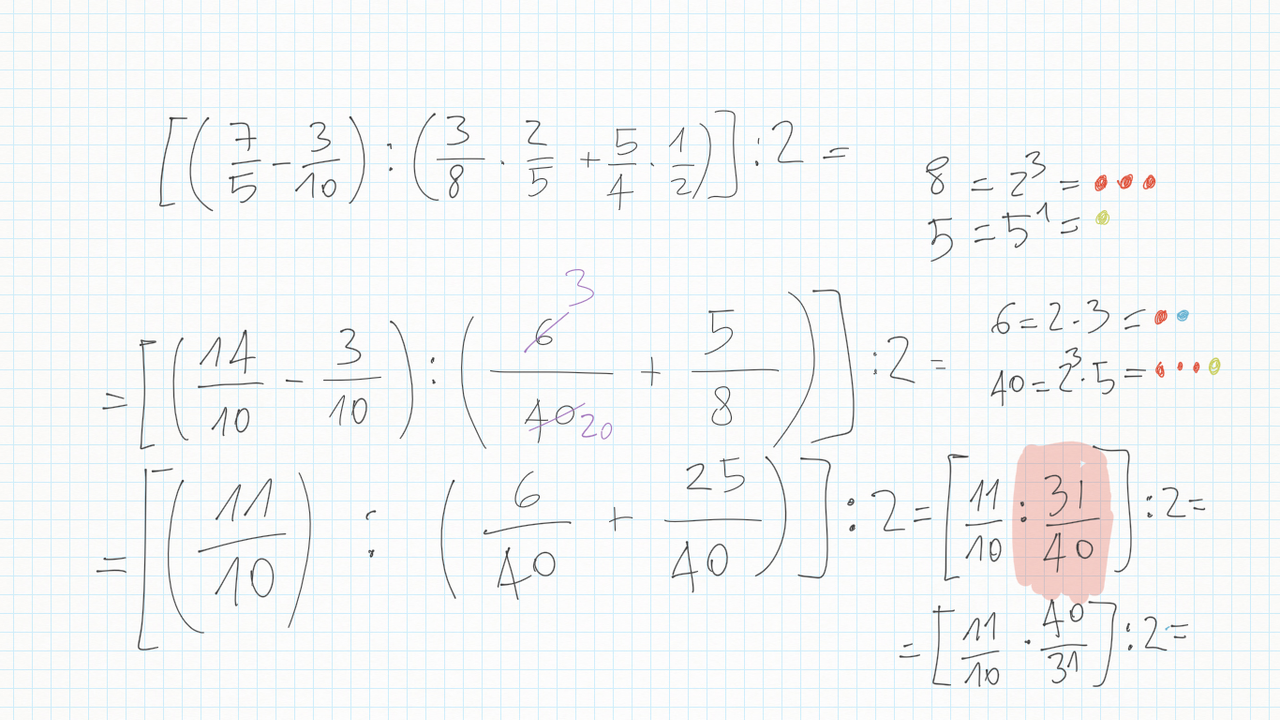 [(7/5 - 3/10) : (3/8 · 2/5 + 5/4 · 1/2)] : 2 =
8 = 2³ =
5 = 5¹ =
= [(14/10 - 3/10) : (6/40 + 5/8)] : 2 =
3
20
6 = 2 · 3 =
40 = 2³ · 5 =
= [(11/10) : (6/40 + 25/40)] : 2 = [11/10 : 31/40] : 2 =
= [11/10 · 40/31] : 2 =